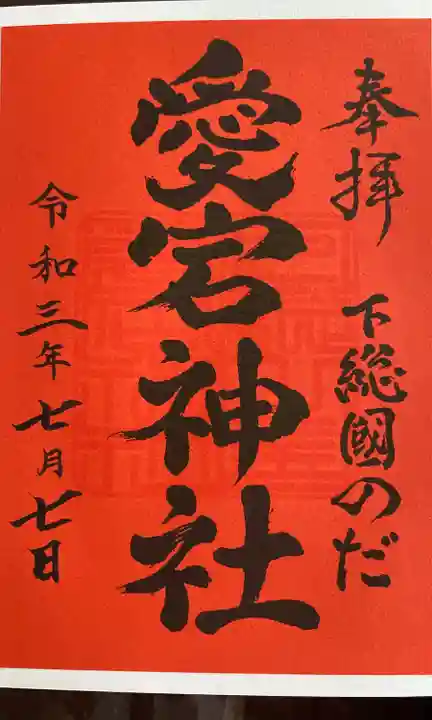 奉拝 下総國のだ
愛宕神社
令和三年七月七日